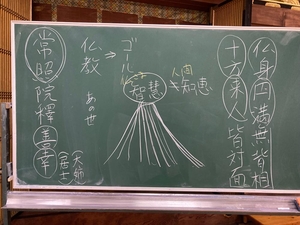 仏身円満無背相
十方来人皆対面
人間
≠知恵
仏さま
智慧
ゴール
⇒
仏教
あの世
常照院釋善幸
(大姉)
(居士)